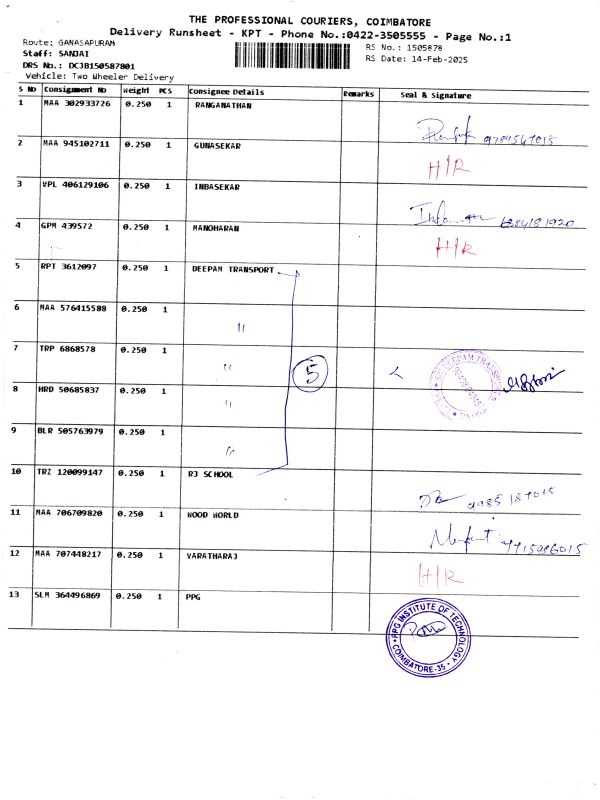 THE PROFESSIONAL COURIERS, COIMBATORE
Delivery Runsheet - KPT - Phone No.:0422-3505555 - Page No.:1
Route: GANASAPURAM
RS No.: 1505878
Staff: SANJAI
RS Date: 14-Feb-2025
DRS No.: DCJB150587801
Vehicle: Two Wheeler Delivery
S No Consignment No Weight PCS Consignee Details Remarks Seal & Signature
1 MAA 302933726 0.250 1 RANGANATHAN
2 MAA 945102711 0.250 1 GUNASEKAR
H/R
3 VPL 406129106 0.250 1 INBASEKAR
4 GPM 439572 0.250 1 MANOHARAN
H/R
5 RPT 3612097 0.250 1 DEEPAM TRANSPORT
6 MAA 576415588 0.250 1
"
7 TRP 6868578 0.250 1
"
5
8 HRD 50685837 0.250 1
"
9 BLR 505763979 0.250 1
"
10 TRZ 120099147 0.250 1 RJ SCHOOL
11 MAA 706709820 0.250 1 WOOD WORLD
12 MAA 707448217 0.250 1 VARATHARAJ
H/R
13 SLM 364496869 0.250 1 PPG
PPG INSTITUTE OF TECHNOLOGY
COIMBATORE-35